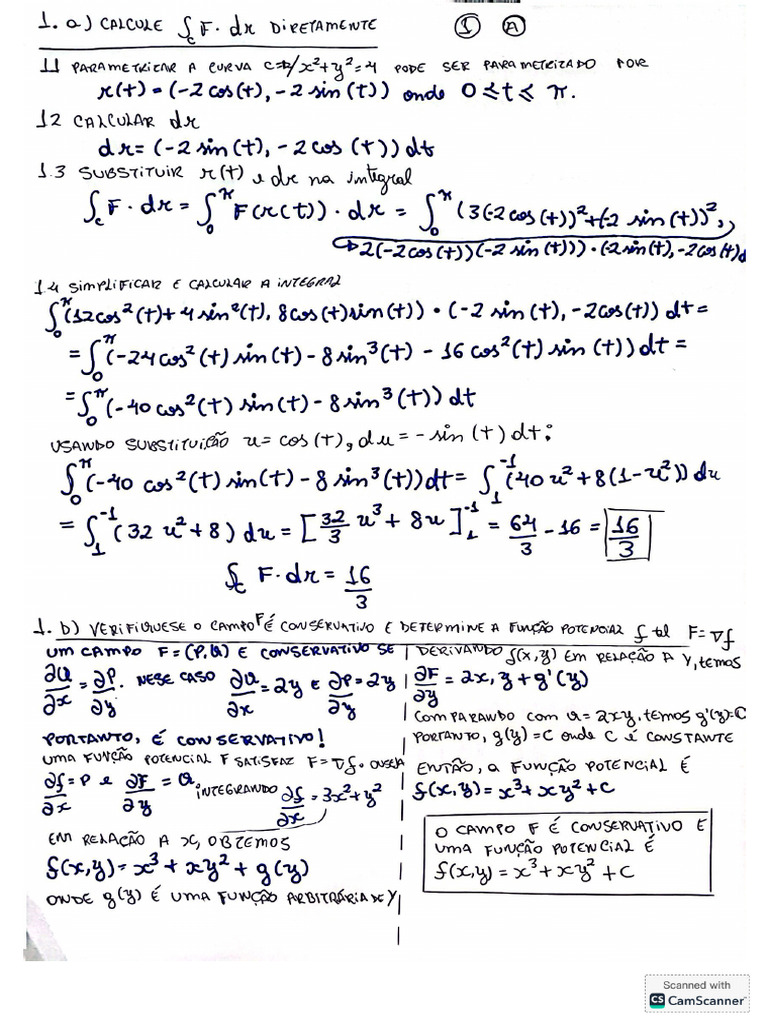 1. a) CALCULE ∫c F · dr DIRETAMENTE ① Ⓐ
1.1 PARAMETRIZAR A CURVA C x²+y²=4 PODE SER PARAMETRIZADO POR
r(t) = (-2 cos(t), -2 sin(t)) onde 0 ≤ t ≤ π.
1.2 CALCULAR dr
dr = (-2 sin(t), -2 cos(t)) dt
1.3 SUBSTITUIR r(t) e dr na integral
∫c F · dr = ∫₀^π F(r(t)) · dr = ∫₀^π (3(-2cos(t))²+(-2 sin(t))²,
2(-2cos(t))(-2 sin(t))) · (-2sin(t), -2cos(t)d
1.4 SIMPLIFICAR E CALCULAR A INTEGRAL
∫₀^π (12cos²(t)+4 sin²(t), 8cos(t)sin(t)) · (-2 sin(t), -2cos(t)) dt =
= ∫₀^π (-24cos²(t) sin(t) - 8 sin³(t) - 16 cos²(t) sin (t)) dt =
= ∫₀^π (-40 cos²(t) sin(t) - 8 sin³(t)) dt
USANDO SUBSTITUIÇÃO u = cos(t), du = -sin(t) dt:
∫₀^π (-40 cos²(t) sin(t) - 8 sin³(t)) dt = ∫₁^-1 (40 u² + 8(1-u²)) du
= ∫₁^-1 (32 u² + 8) du = [32/3 u³ + 8u]₁^-1 = 64/3 - 16 = 16/3
∫c F · dr = 16/3
1. b) VERIFIQUESE O CAMPO F É CONSERVATIVO E DETERMINE A FUNÇÃO POTENCIAL f tal F = ∇f
UM CAMPO F = (P, Q) E CONSERVATIVO SE
∂Q/∂x = ∂P/∂y. NESE CASO ∂Q/∂x = 2y E ∂P/∂y = 2y
PORTANTO, É CONSERVATIVO!
UMA FUNÇÃO POTENCIAL F SATISFAZ F = ∇f. OUSEJA
∂f/∂x = P e ∂F/∂y = Q, INTEGRANDO ∂f/∂x = 3x² + y²
EM RELAÇÃO A x, OBTEMOS
f(x,y) = x³ + xy² + g(y)
ONDE g(y) É UMA FUNÇÃO ARBITRÁRIA DE Y
DERIVANDO f(x,y) EM RELAÇÃO A Y, TEMOS
∂F/∂y = 2x, y + g'(y)
COMPARANDO com Q = 2xy, temos g'(y)=0
PORTANTO, g(y) = C onde C é CONSTANTE
ENTÃO, a FUNÇÃO POTENCIAL É
f(x,y) = x³ + xy² + C
O CAMPO F É CONSERVATIVO E
UMA FUNÇÃO POTENCIAL É
f(x,y) = x³ + xy² + C
Scanned with
CS CamScanner